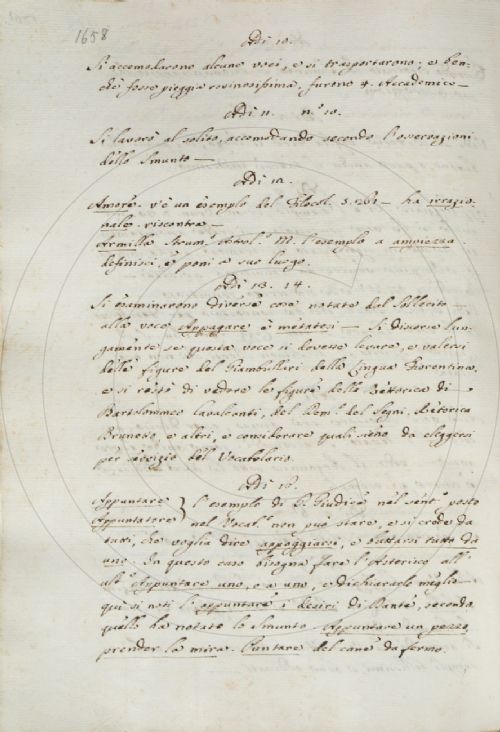 1658
Adi 10.
Si accomodarono alcune voci, e si trasportarono; e ben-
chè fosse pioggia rovinosissima, furono 4. Accademici —
Adi 11. n.º 10.
Si lavorò al solito, accomodando secondo l'osservazioni
dello Smunto —
Adi 12.
Amore. v'è un esempio del Filocol. 3. 261 — ha irragio-
nale. riscontra —
Armilla Strum.º Astrol.º M. l'esempio a ampiezza.
definisci, e poni a suo luogo.
Adi 13. 14.
Si esaminarono diverse cose notate del Sollecito —
alla voce Appagare è metatesi — Si discorse lun-
gamente se questa voce si dovesse levare, e valersi
delle figure del Giambullari della Lingua Fiorentina,
e si restò di vedere le figure della Rettorica di
Bartolommeo Cavalcanti, del Dem.º del Segni, Rettorica
Brunetto, e altri, e considerare quali sieno da eleggersi
per servizio del Vocabolario.
Adi 16.
Appuntare l'esempio di G. Giudice nel sen.º posto
Appuntatore nel Vocab.º non può stare, e si crede da
tutti, che voglia dire appoggiarsi, e buttarsi tutto da
uno. In questo caso bisogna fare l'Asterico all'
ult.º Appuntare uno, o a uno, e dichiararle meglio
qui si noti l'appuntare i desiri di Dante, secondo
quello ha notato lo Smunto Appuntare un pezzo,
prender la mira. Puntare del cane da fermo.